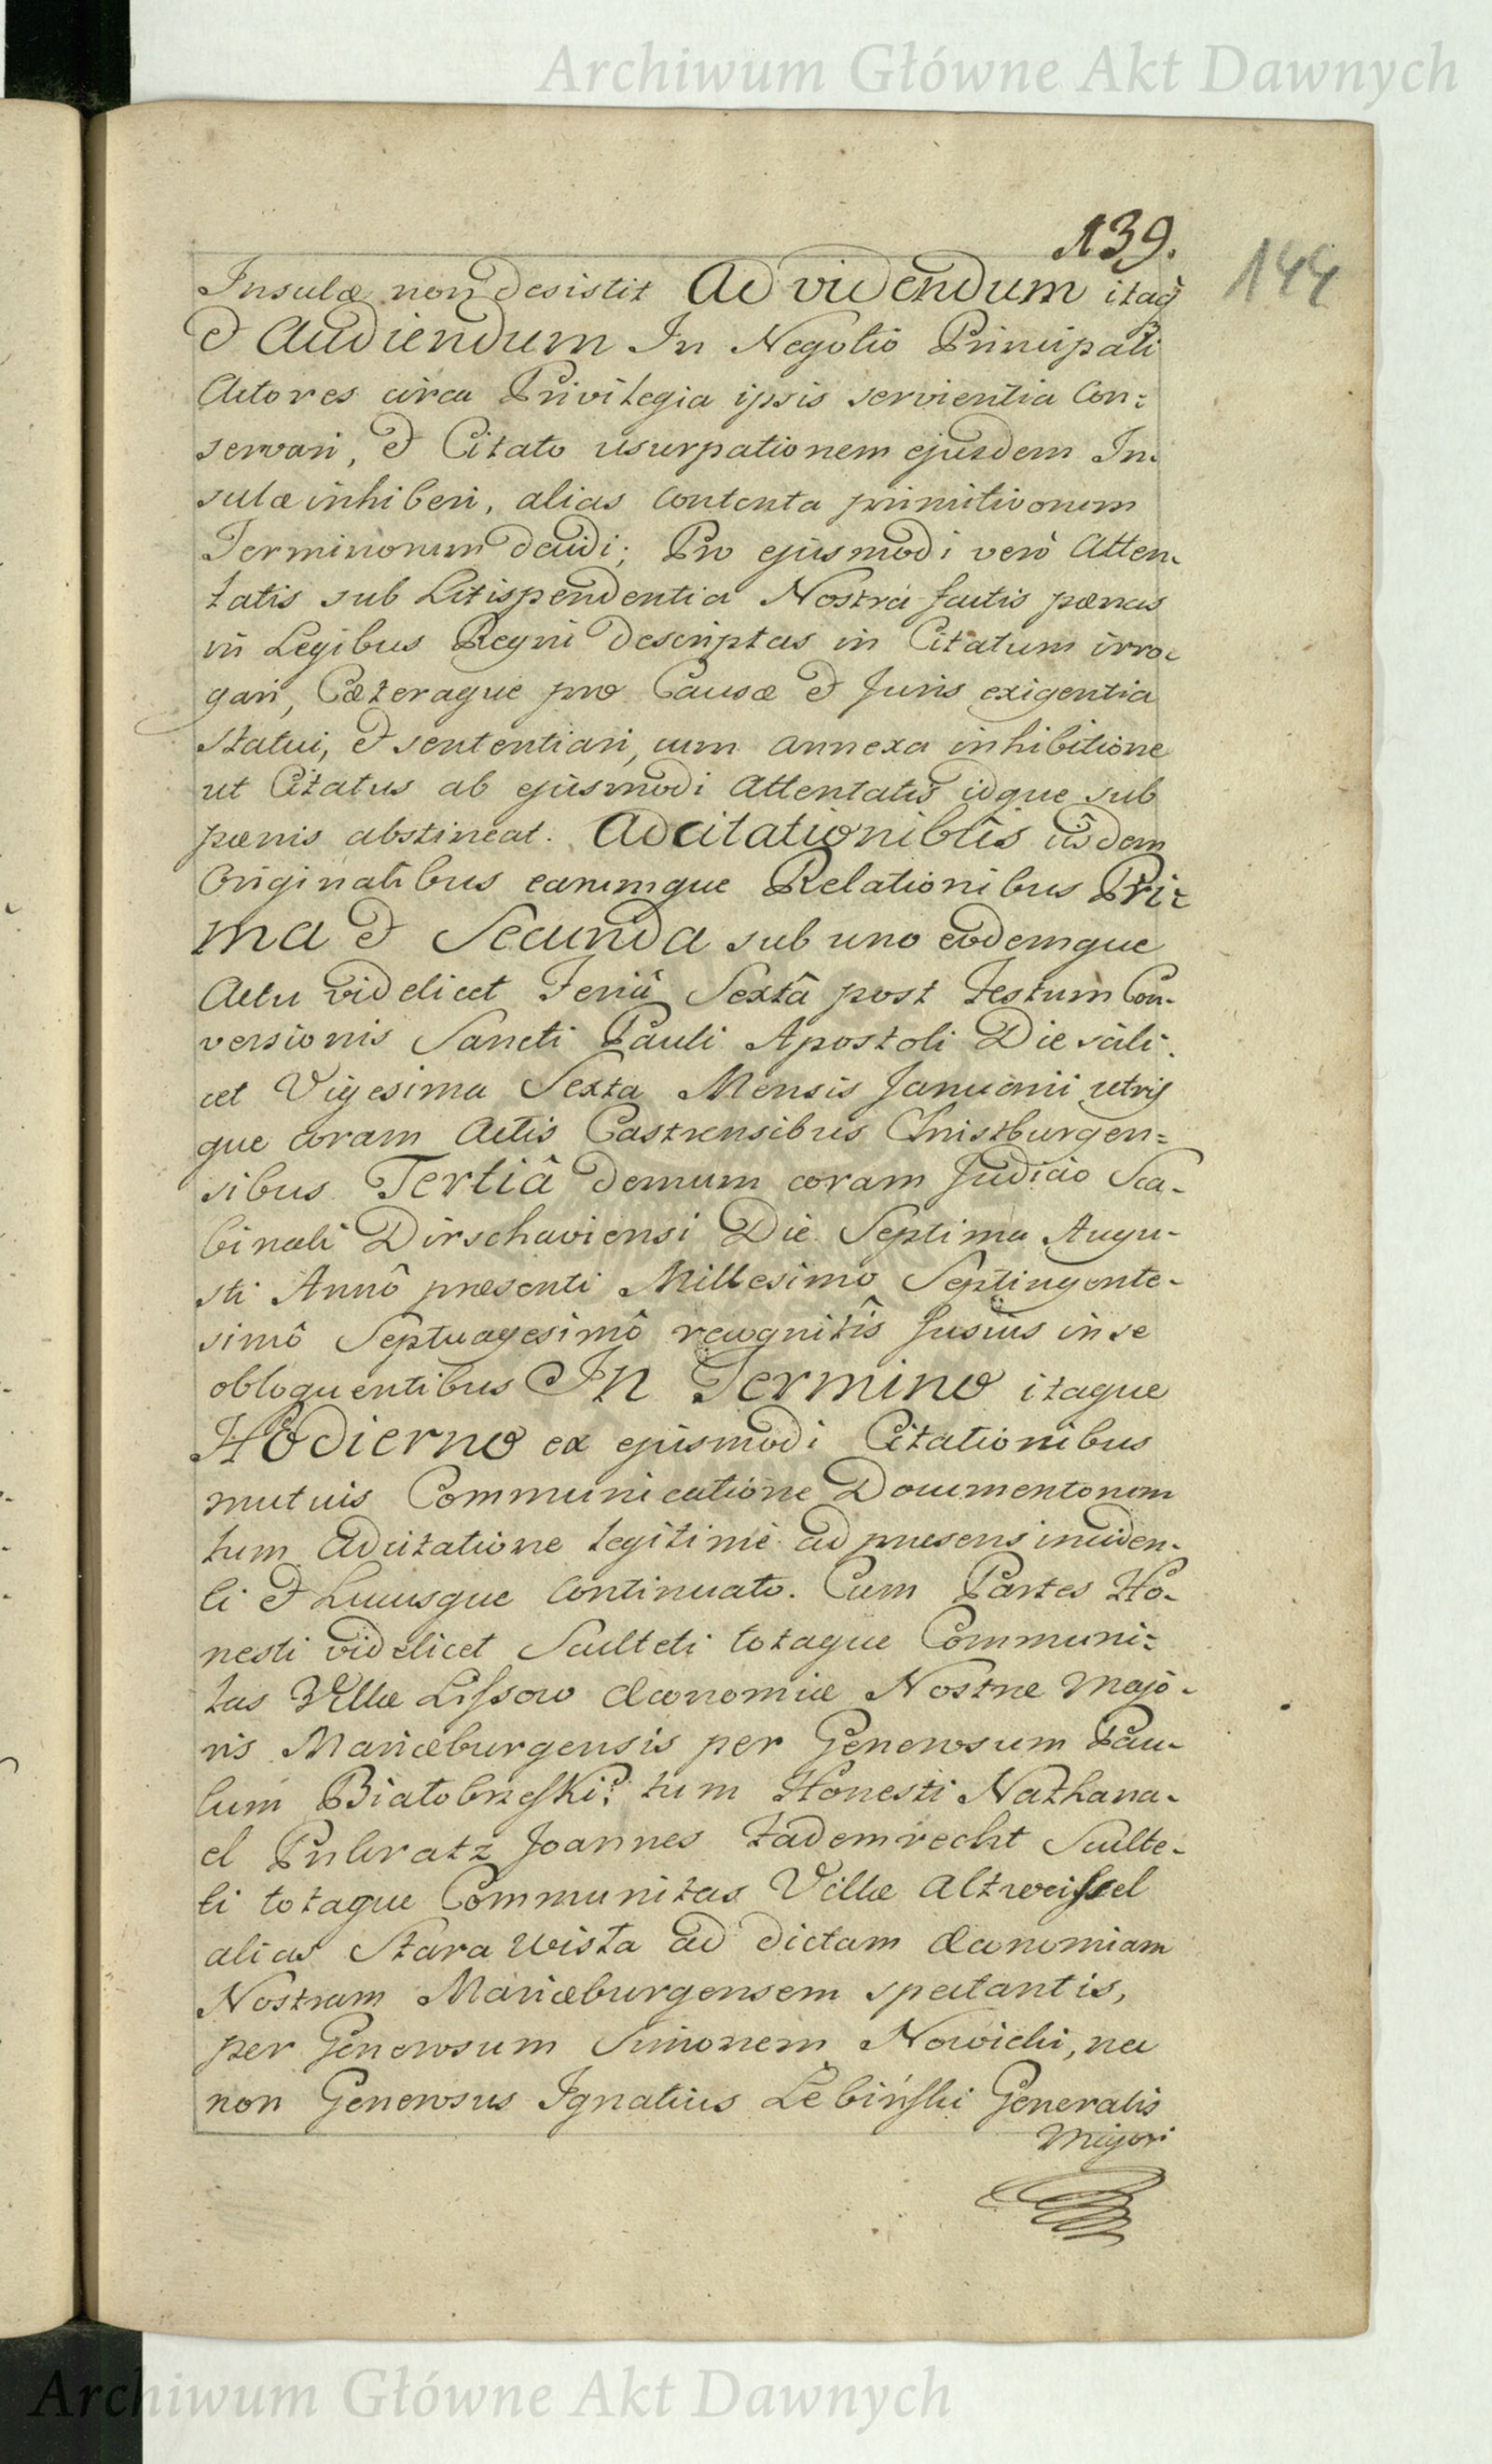 Archiwum Główne Akt Dawnych
139.
144
Insulæ non desistit Ad videndum itaq
et Audiendum In Negotio Principali
Actores circa Privilegia ipsis servientia Con:
servari, et Citato usurpationem ejusdem In-
sulæ inhiberi, alias contenta primitivorum
Terminorum decidi; Pro ejusmodi verò Atten-
tatis sub Litispendentia Nostra factis pœnas
in Legibus Regni descriptas in Citatum irro-
gari, Cæteraque pro Causæ et Juris exigentia
statui, et sententiari, cum annexa inhibitione
ut Citatus ab ejusmodi Attentatis idque sub
pœnis abstineat. Adcitationibûs iisdem
Originalibus earumque Relationibus Pri-
ma et Secunda sub uno eodemque
Actu videlicet Feriâ Sextâ post Festum Con-
versionis Sancti Pauli Apostoli Die scili-
cet Vigesima Sexta Mensis Januarii utris
que coram Actis Castrensibus Christburgen=
sibus Tertiâ demum coram Judicio Sca-
binali Dirschaviensi Die Septima Augu-
sti Annô præsenti Millesimo Septingente-
simô Septuagesimô recognitîs fusius in se
obloquentibus In Termino itaque
Hodierno ex ejusmodi Citationibus
mutuis Communicatione Documentorum
tum Adcitatione legitimè ad præsens inciden-
ti et hucusque continuato. Cum Partes Ho-
nesti videlicet Sculteti totaque Communi-
tas Villæ Lissow Œconomiæ Nostræ Majo-
ris Mariæburgensis per Generosum Pau-
lum Białobrzeski: tum Honesti Nathana-
el Pulvratz Joannes Fademrecht Sculte-
ti totaque Communitas Villæ Altweissel
alias Stara Wisła ad dictam Œconomiam
Nostram Mariæburgensem spectantis,
per Generosum Simonem Nowicki, nec
non Generosus Ignatius Lebiński Generalis
Major
Archiwum Główne Akt Dawnych